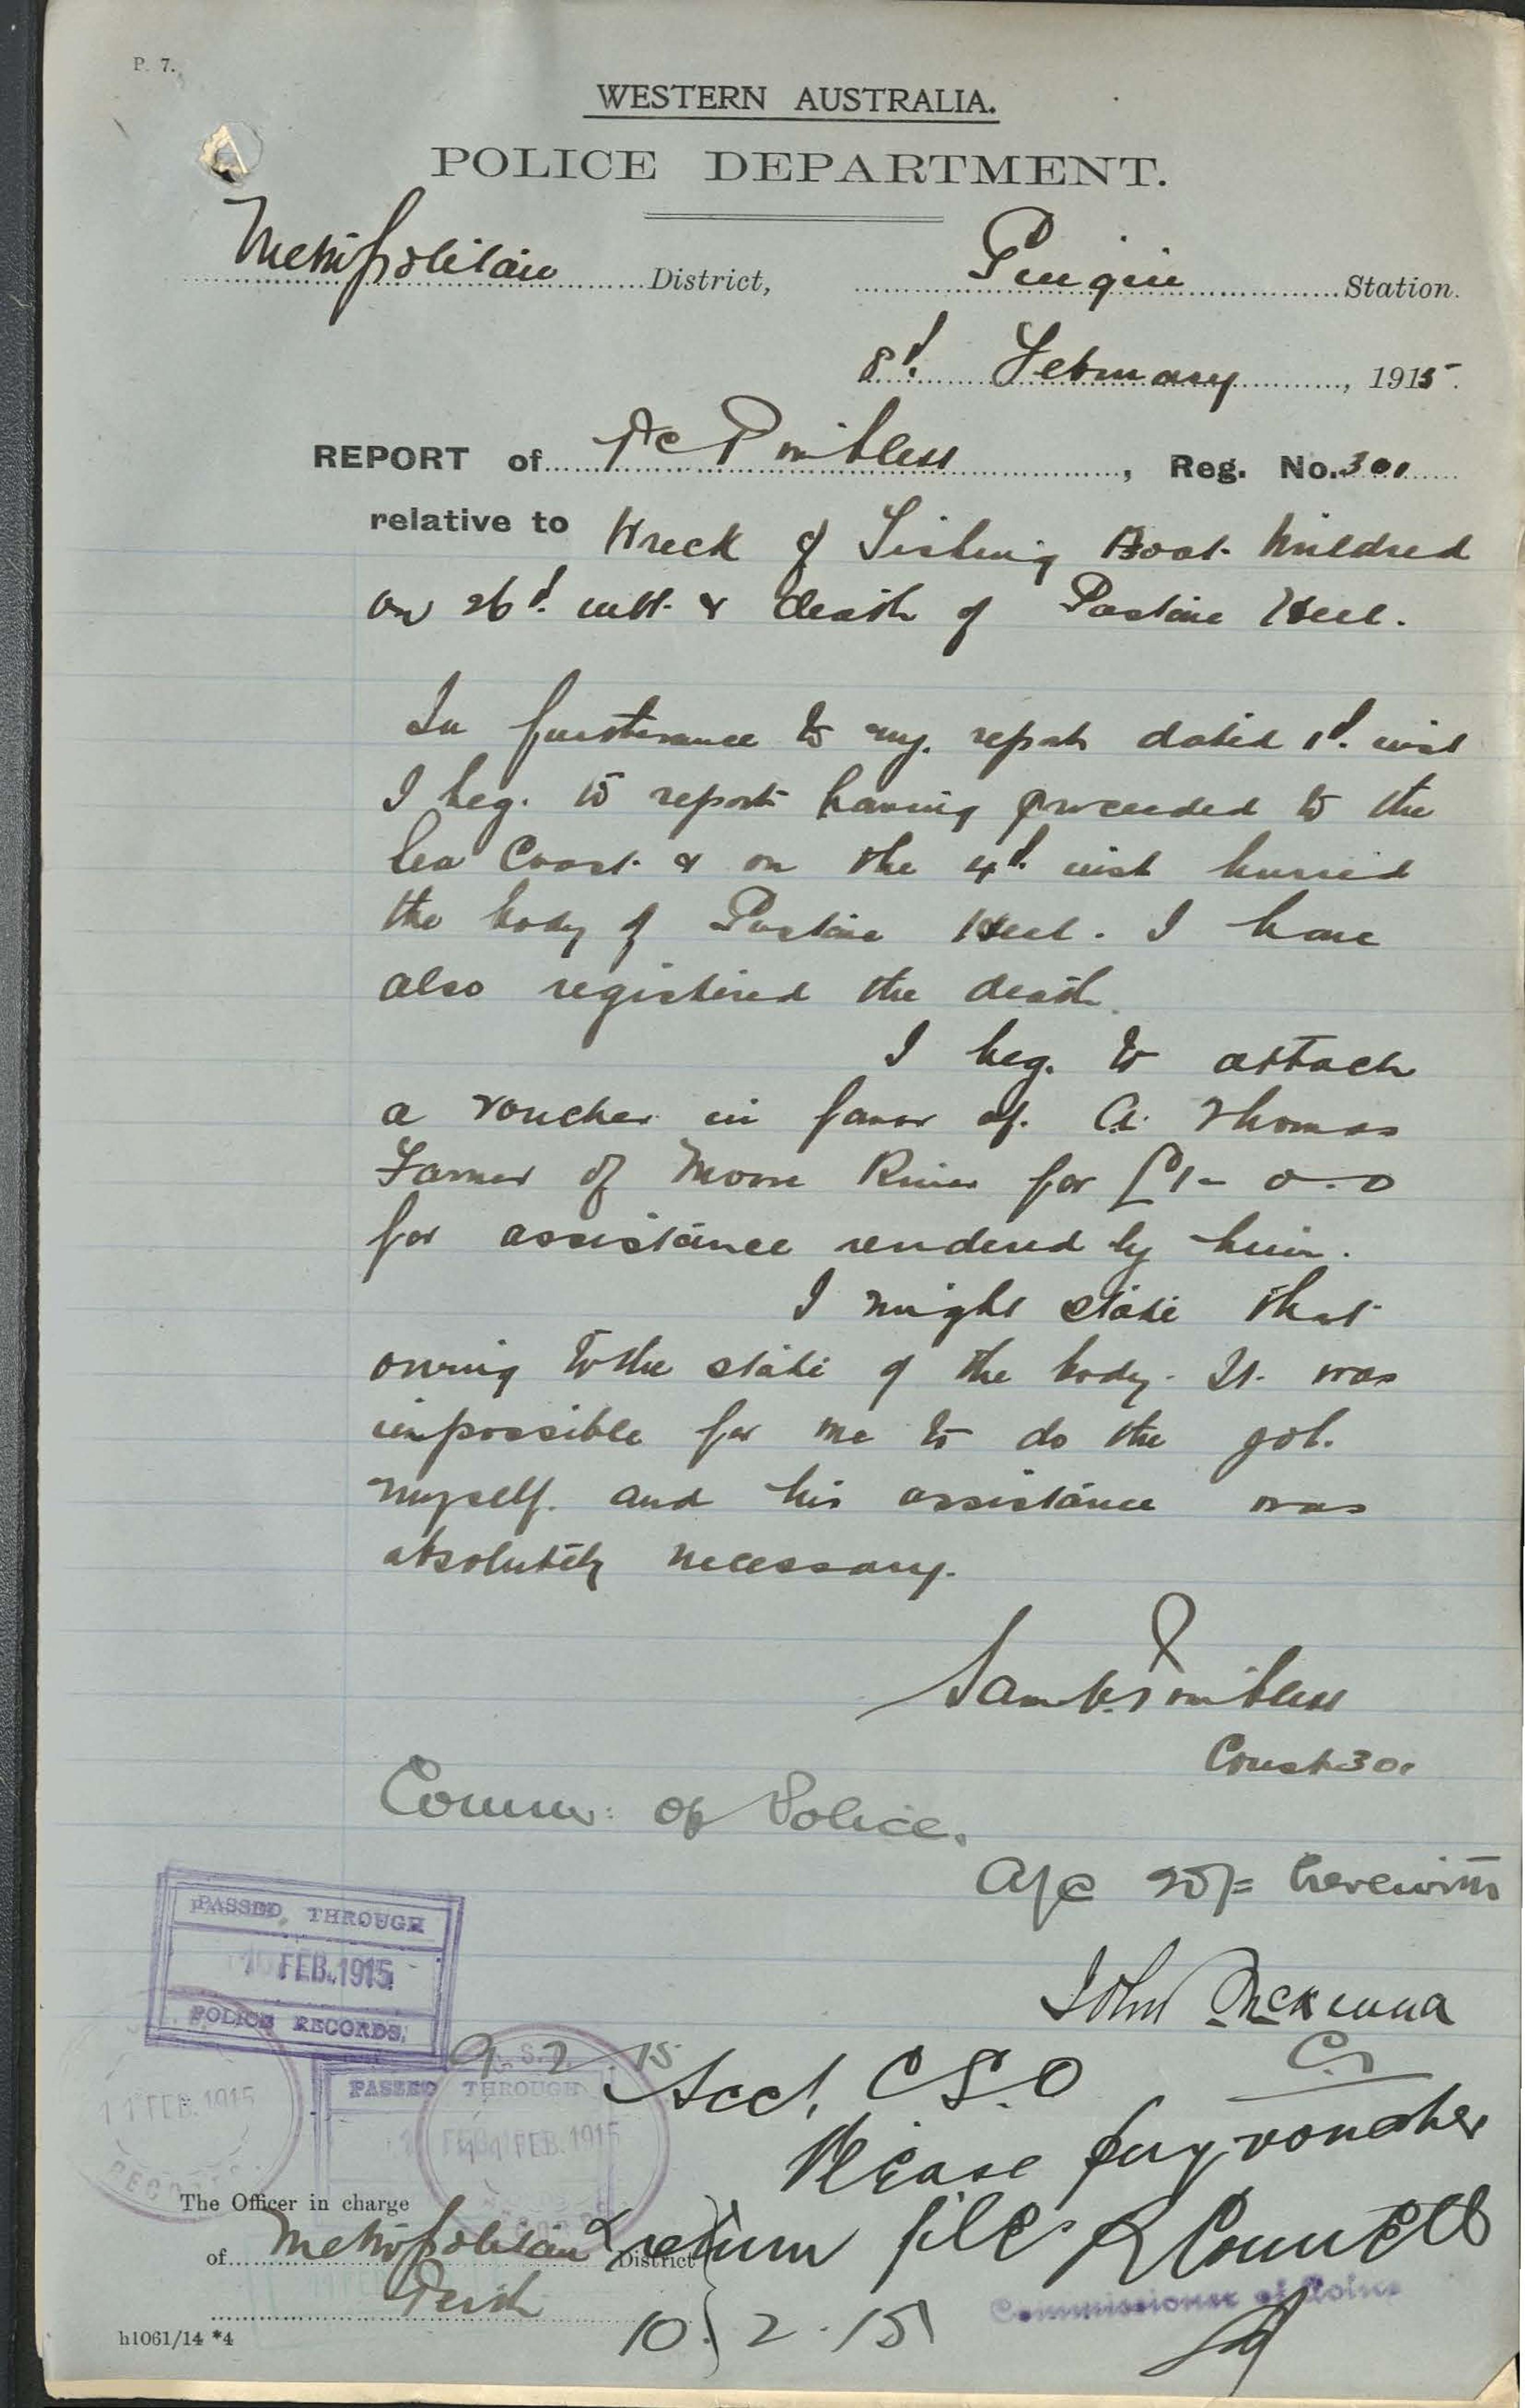 P. 7.
WESTERN AUSTRALIA.
POLICE DEPARTMENT.
Metropolitan District, Gingin Station.
8th February, 1915.
REPORT of P C, Reg. No. 301
relative to Wreck of Fishing Boat Mildred
on 26th ult. & death of
In furtherance to my. report dated 1st. inst
I beg. to report having proceeded to the
Sea Coast. & on the 4th. inst burried
the body of . I have
also registered the death.
I beg. to attach
a voucher in favor of. A. Thomas
Farmer of Moore River for £1 - 0 . 0
for assistance rendered by him.
I might state that
owing to the state of the body. It. was
impossible for me to do the job.
myself. and his assistance was
absolutely necessary.
Const 301
Commr: of Police.
A/c 20/= herewith
John McKenna
PASSED THROUGH
FEB. 1915
POLICE RECORDS.
9. 2 15
Acct. C S. O
PASSED THROUGH
11 FEB. 1915
FEB. 1915
RECORDS
Please pay voucher
The Officer in charge
& return file R Connell
of Metropolitan District
Perth
Commissioner of Police
10. 2. 15
h1061/14 *4